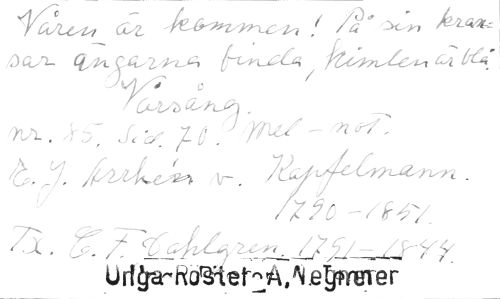 Våren är kommen! På sin kran=
sar ängarna binda, himlen är blå.
Vårsång.
nr. 85. Sid. 70. Mel - not.
E. J. Arrhén v. Kapfelmann.
1790 - 1851.
Tx. C. F. Dahlgren. 1791 - 1844.
Unga Röster A.